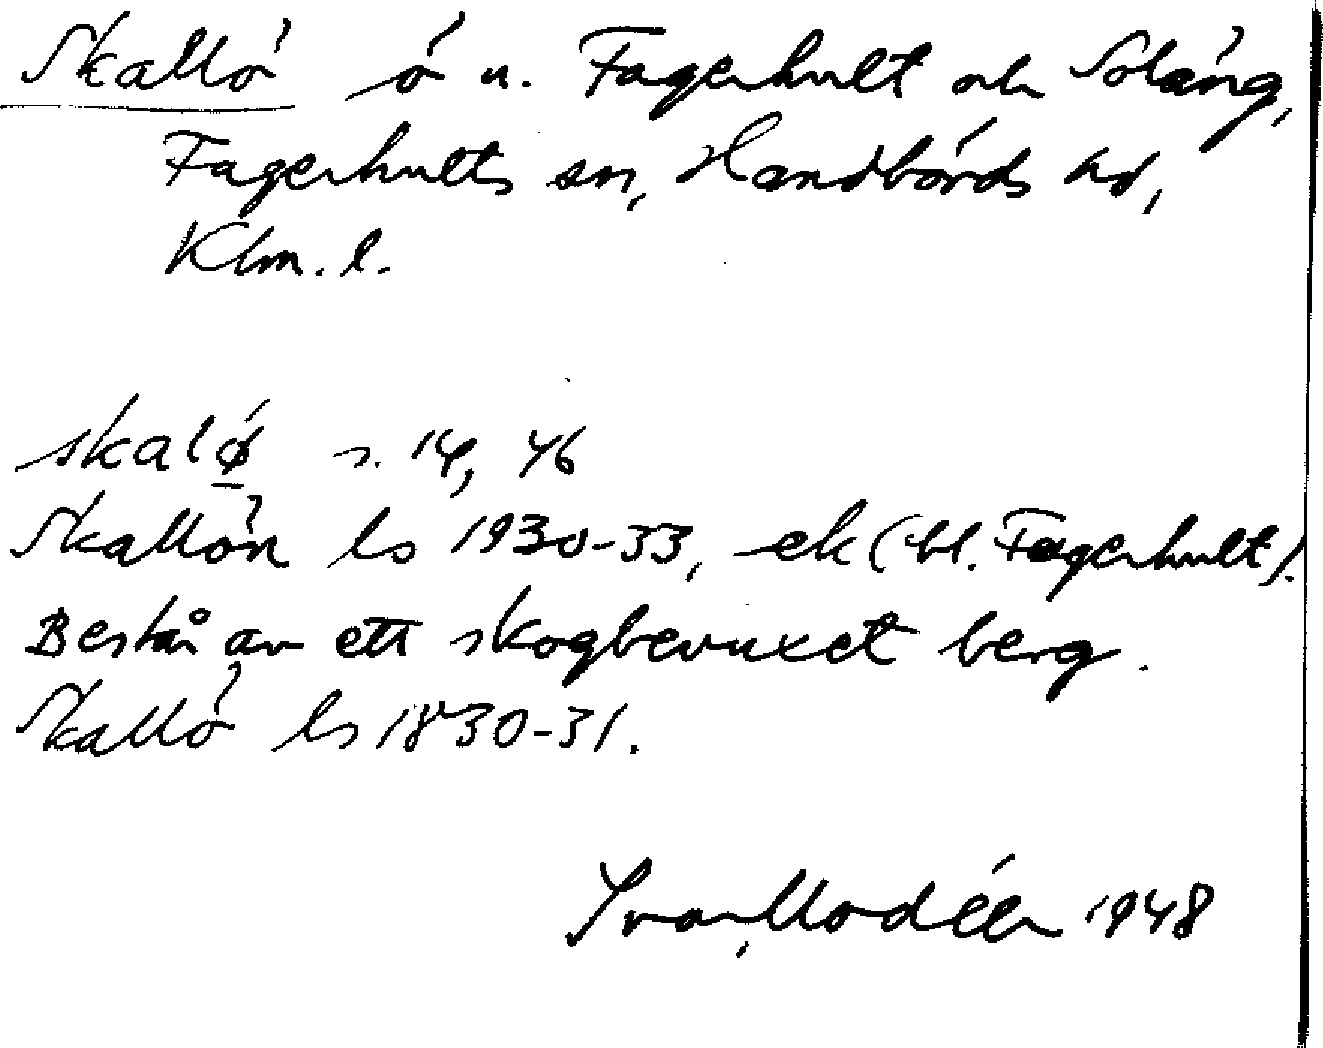 Skallö ö u. Fagerhult och Soläng,
Fagerhults sn, Handbörds hd,
Klm. l.
skalø s. 14, 46
Skallön ls 1930-33, ek (bl. Fagerhult).
Består av ett skogbevuxet berg.
Skallö ls 1830-31.
Ivar Modéer 1948